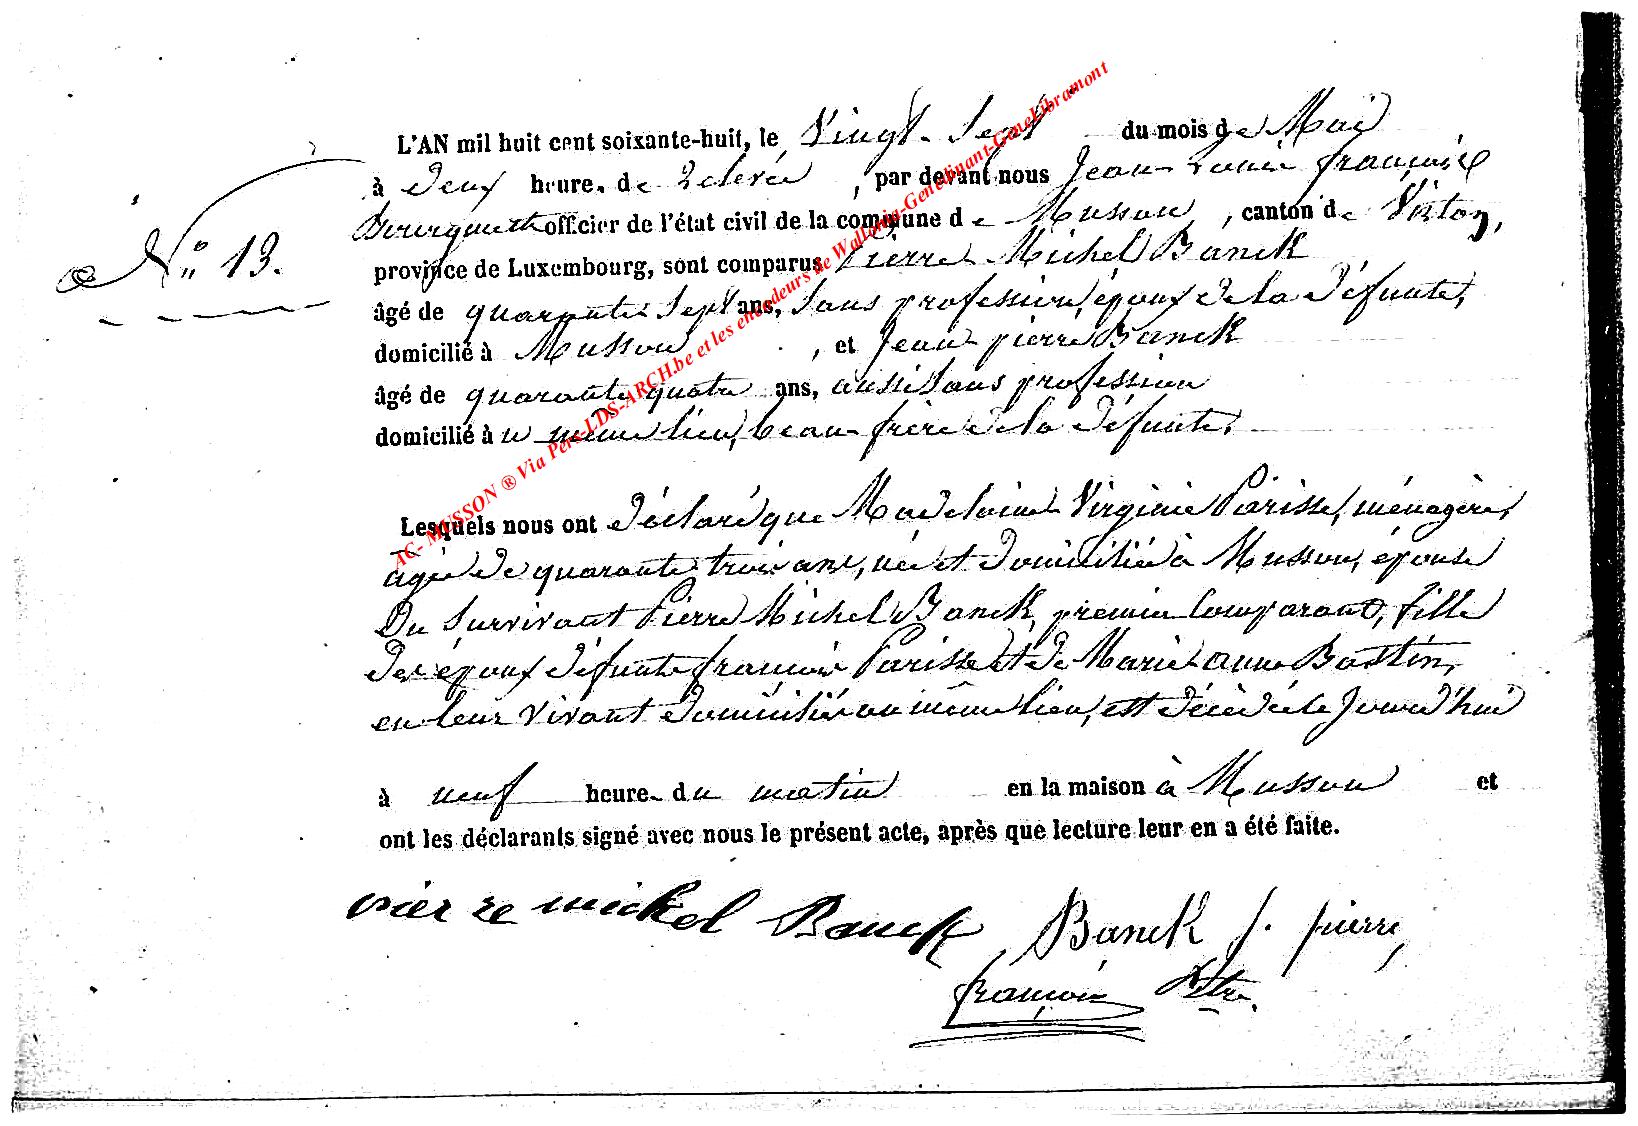 L'AN mil huit cent soixante-huit, le Vingt-Sept du mois de Mai
à deux heure. de relevée, par devant nous Jean Louis françois
officier de l'état civil de la commune de Musson, canton de Virton,
N° 13.
province de Luxembourg, sont comparus Pierre Michel Banck
âgé de quarante-Sept ans, Sans profession, époux de la défunte,
domicilié à Musson, et Jean pierre Banck
âgé de quarante quatre ans, aussi Sans profession
domicilié à même lieu, beau-frère de la défunte.
Lesquels nous ont déclaré que Madelaine Virginie Parisse, ménagère,
agée de quarante trois ans, née et domiciliée à Musson, épouse
Du Survivant Pierre Michel Banck, premier Comparant, fille
Des époux défunts françois Parisse et de Marie-anne Bastin,
en leur vivant domiciliés au même lieu, est décédée le Jourd'hui
à neuf heure. du matin en la maison à Musson et
ont les déclarants signé avec nous le présent acte, après que lecture leur en a été faite.
pier re michel Banck Banck J. pierre
françois
AC- MUSSON ® Via Pers-LDS-ARCH.be et les encodeurs de Wallonia-Genedinant-GeneLibramont